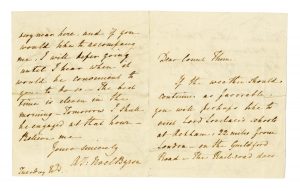 Dear Count Thun
If the weather should
continue as favorable
you will perhaps like to
visit Lord Lovelace's schools
at Ockham, 22 miles from
London – on the Guildford
Road – The Railroad does
very near here. and if you
would like to accompany
me, I will defer going
until I hear when it
would be convenient to
you to do so – The best
time is eleven in the
morning – Tomorrow I shall
be engaged at that hour –
Believe me
Yours sincerely
A. I. Noel Byron
Tuesday